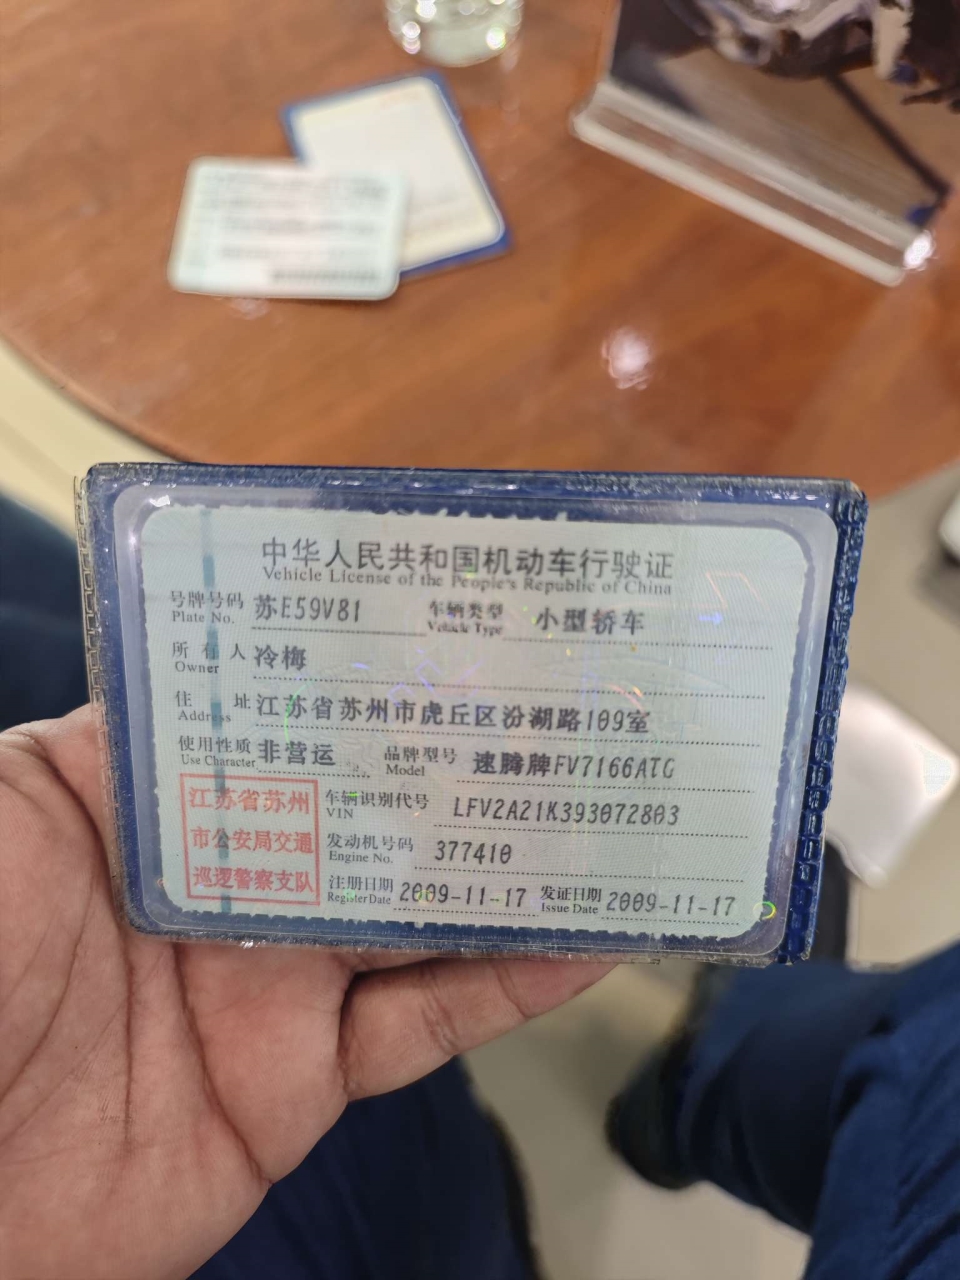 中华人民共和国机动车行驶证
Vehicle License of the People's Republic of China
号牌号码 苏E59V81 车辆类型 小型轿车
Plate No. Vehicle Type
所有人 冷梅
Owner
住址 江苏省苏州市虎丘区汾湖路109室
Address
使用性质 非营运 品牌型号 速腾牌FV7166ATG
Use Character Model
江苏省苏州
市公安局交通
巡逻警察支队
车辆识别代号 LFV2A21K393072803
VIN
发动机号码 377410
Engine No.
注册日期 2009-11-17 发证日期 2009-11-17
Register Date Issue Date